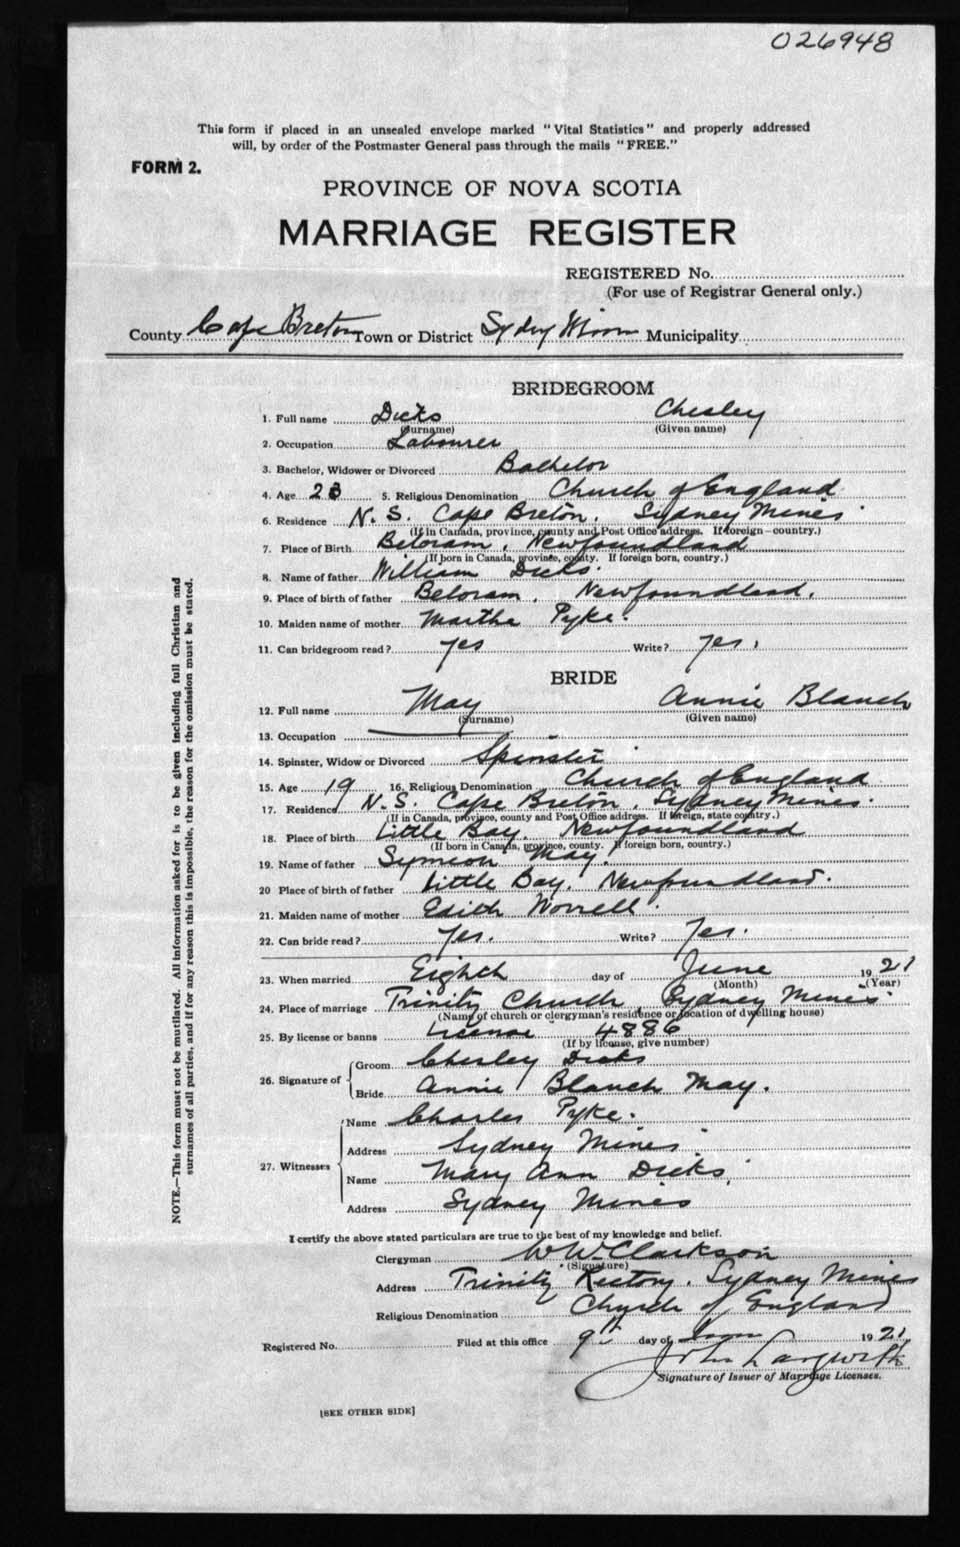 026948
This form if placed in an unsealed envelope marked "Vital Statistics" and properly addressed
will, by order of the Postmaster General pass through the mails "FREE."
FORM 2.
PROVINCE OF NOVA SCOTIA
MARRIAGE REGISTER
REGISTERED No.
(For use of Registrar General only.)
County Cape Breton Town or District Sydney Mines Municipality
BRIDEGROOM
1. Full name Dicks Chesley
(Surname) (Given name)
2. Occupation Labourer
3. Bachelor, Widower or Divorced Bachelor
4. Age 23 5. Religious Denomination Church of England
6. Residence N. S. Cape Breton, Sydney Mines
(If in Canada, province, county and Post Office address. If foreign—country.)
7. Place of Birth Beloram, Newfoundland
(If born in Canada, province, county. If foreign born, country.)
8. Name of father William Dicks.
9. Place of birth of father Beloram, Newfoundland.
10. Maiden name of mother Martha Pyke.
11. Can bridegroom read? Yes Write? Yes.
BRIDE
12. Full name May Annie Blanch
(Surname) (Given name)
13. Occupation
14. Spinster, Widow or Divorced Spinster
15. Age 19 16. Religious Denomination Church of England
17. Residence N. S. Cape Breton, Sydney Mines.
(If in Canada, province, county and Post Office address. If foreign, state country.)
18. Place of birth Little Bay, Newfoundland
(If born in Canada, province, county. If foreign born, country.)
19. Name of father Symeon May.
20 Place of birth of father Little Bay, Newfoundland.
21. Maiden name of mother Edith Worrell.
22. Can bride read? Yes. Write? Yes.
23. When married Eighth day of June 1921
(Month) (Year)
24. Place of marriage Trinity Church, Sydney Mines
(Name of church or clergyman's residence or location of dwelling house)
25. By license or banns License 4886
(If by license, give number)
26. Signature of Groom Chesley Dicks
Bride Annie Blanch May.
27. Witnesses Name Charles Pyke.
Address Sydney Mines
Name Mary Ann Dicks,
Address Sydney Mines
I certify the above stated particulars are true to the best of my knowledge and belief.
Clergyman W. W. Clarkson
(Signature)
Address Trinity Rectory, Sydney Mines
Religious Denomination Church of England
Registered No. Filed at this office 9th day of June 1921
John Langwith
Signature of Issuer of Marriage Licenses.
[SEE OTHER SIDE]
NOTE.—This form must not be mutilated. All information asked for is to be given including full Christian and
surnames of all parties, and if for any reason this is impossible, the reason for the omission must be stated.